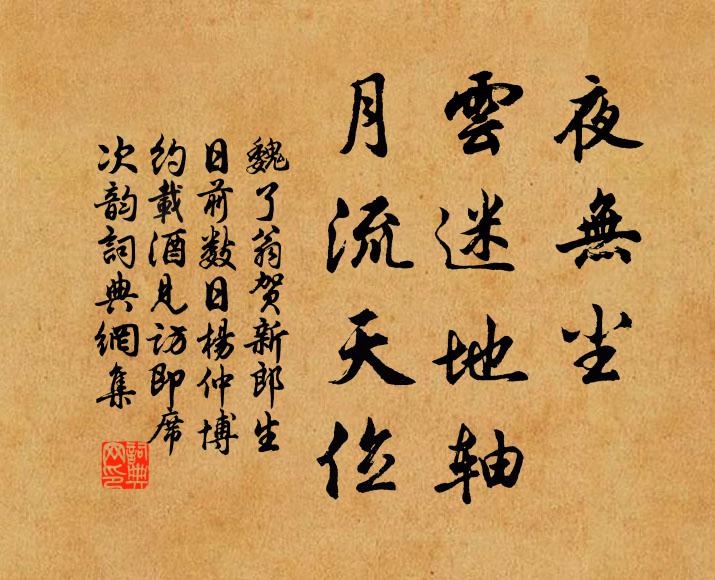 夜無尘
雲迷地轴
月流天位
魏了翁贺新郎生
日前数日楊仲博
约載酒見访即席
次韵詞典網集
詞典
网印